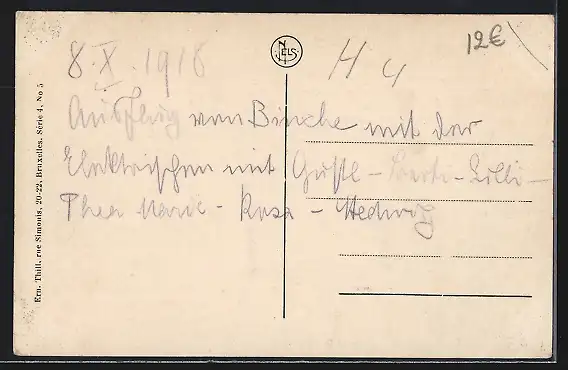 8.X.1918
H 4
12€
NELS
Ausflug von Binche mit der
Elektrischen mit Gustl - Berti - Lilli -
Thea Marie - Rosa - Hedwig
Ern. Thill, rue Simonis, 20-22, Bruxelles. Série 4, No 5